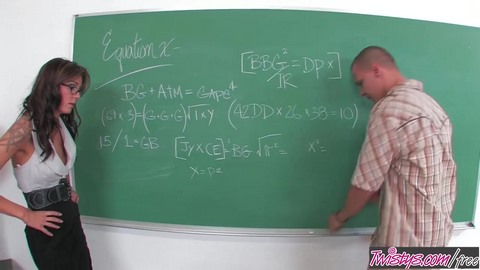 Equation x =
[BBG²/IR = DPx]
BG + AIM = GAPE⁴
(69 x 3) - (G+G+G) √1 x Y (42DD x 26 x 38 = 10)
15 / 1 = GB [Jy x CE]² BG √π² = X² =
X = DE
Twistys.com/free